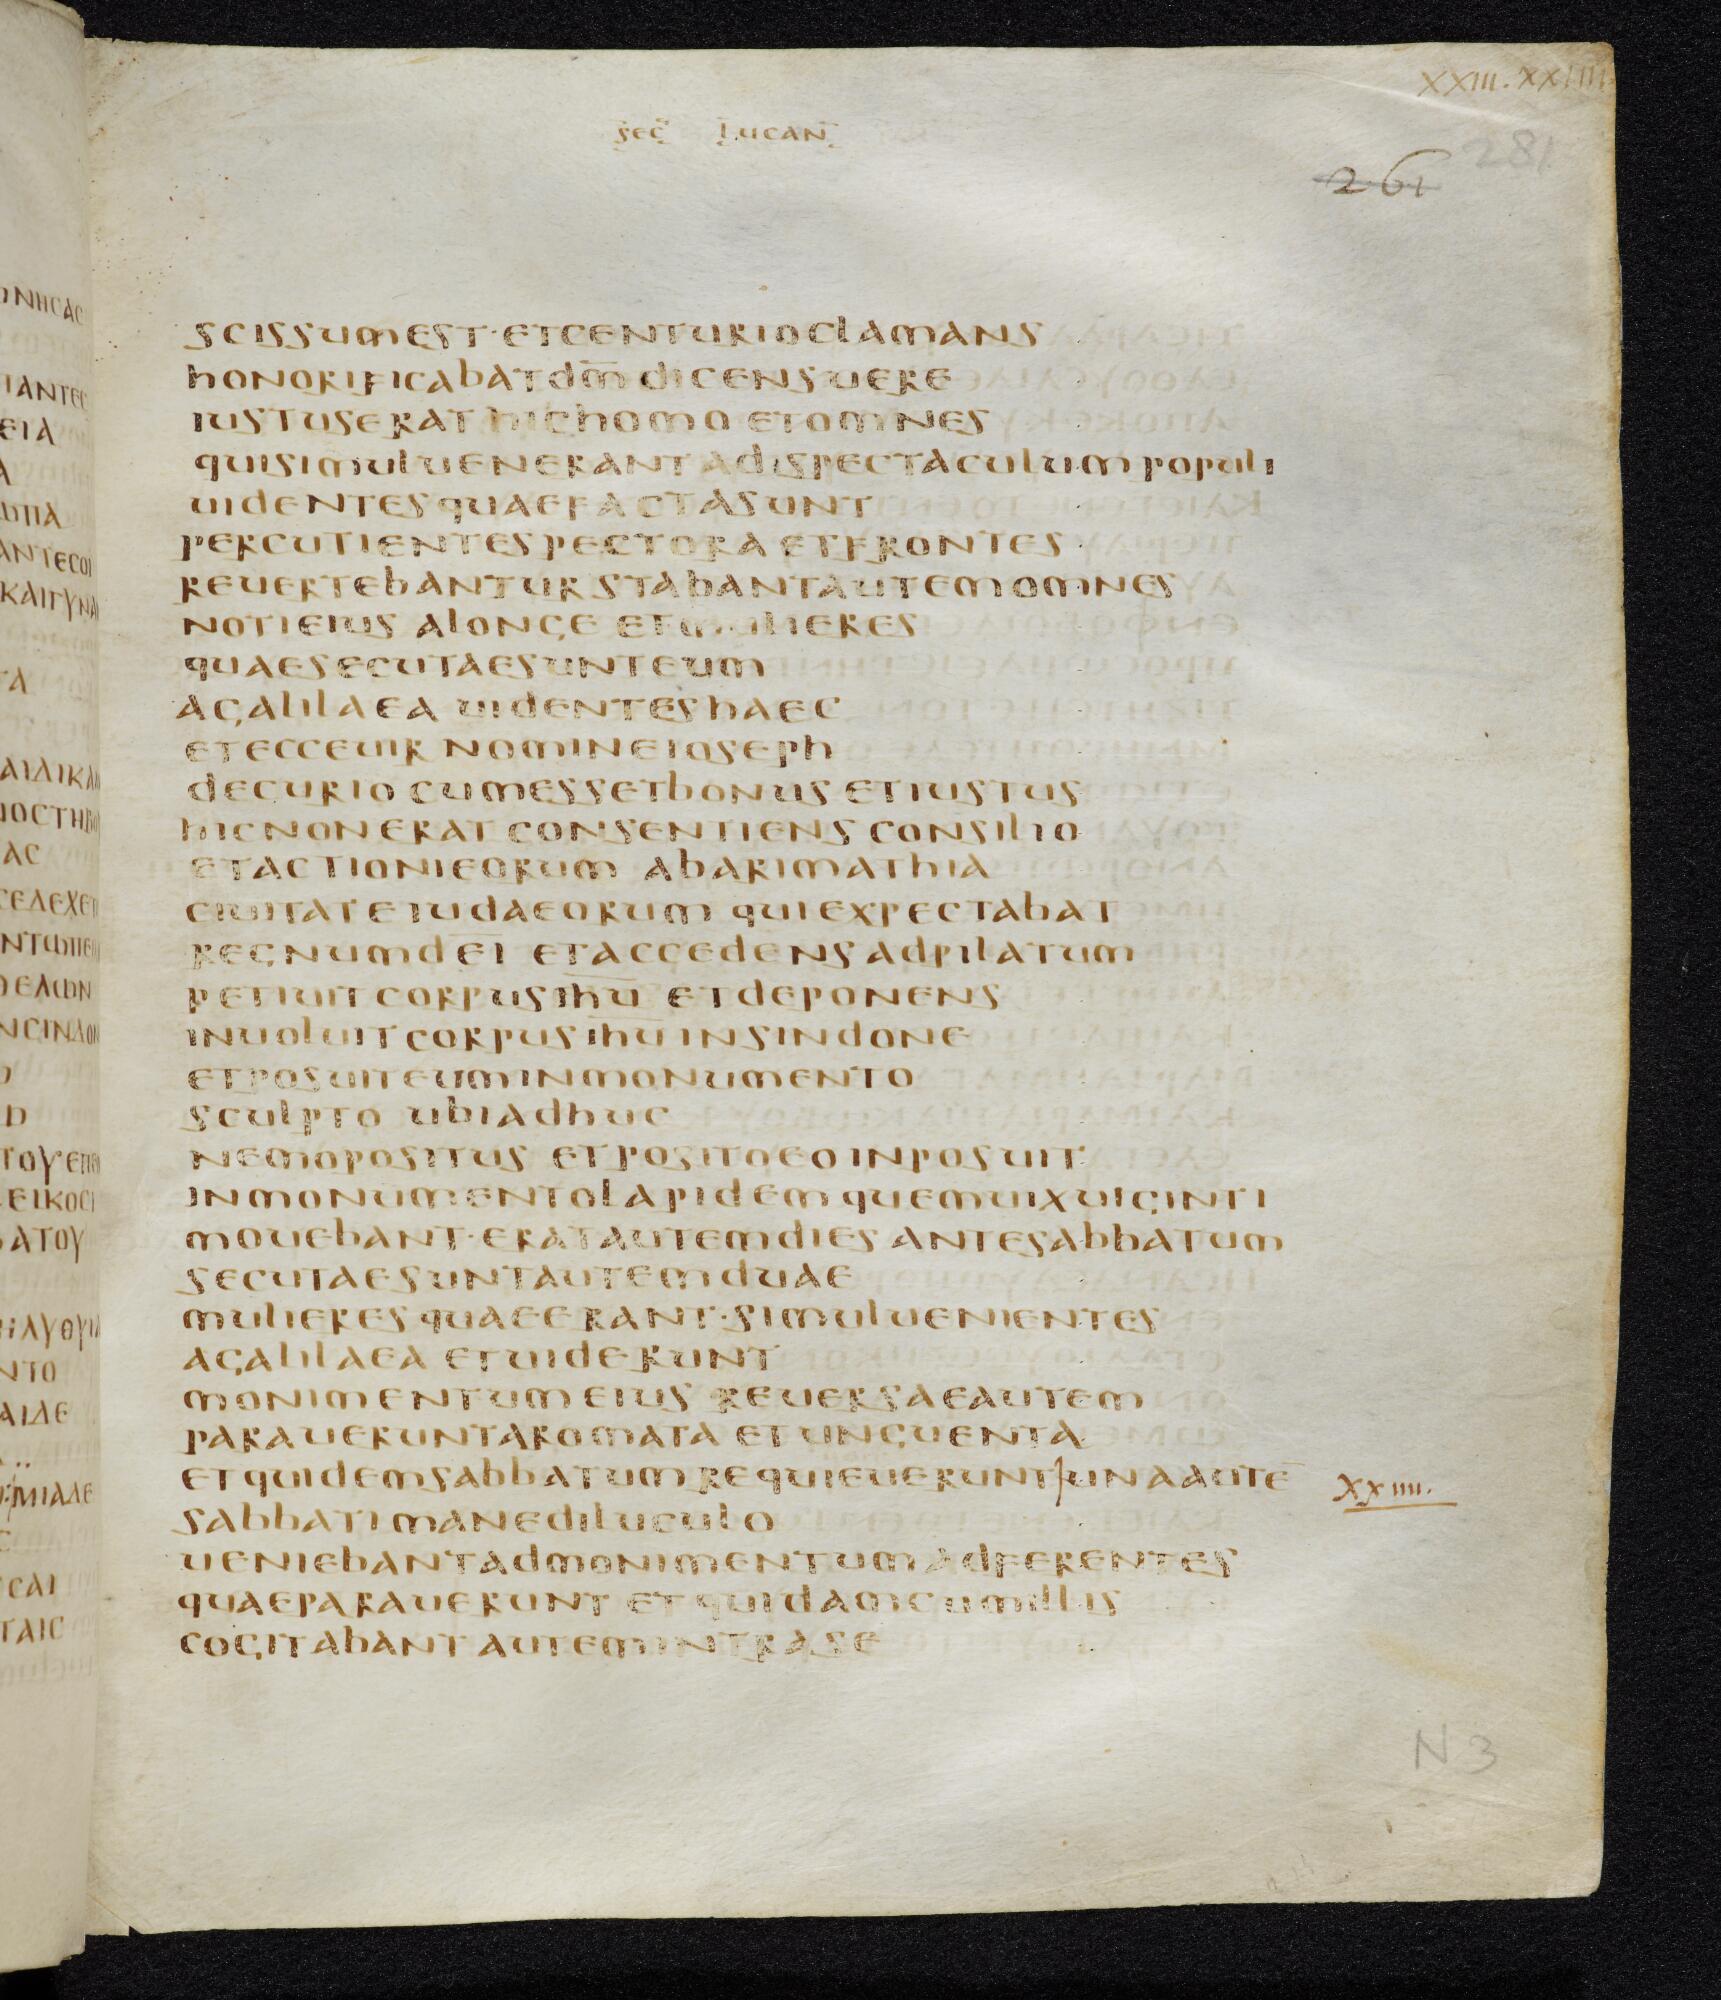 XXIII. XXIIII
sec lucan
281
261
scissumest · etcenturioclamans
honorificabatdm̅ dicensuere
iustuserat hichomo etomnes
quisimuluenerant adispectaculum populi
uidentesquaefactasunt
percutientespectora etfrontes
reuertebantur stabantautemomnes
notieius alonge etmulieres
quaesecutaesunteum
agalilaea uidenteshaec
etecceuir nomineioseph
decurio cumessetbonus etiustus
hicnonerat consentiens consilio
etactionieorum abarimathia
ciuitateiudaeorum quiexpectabat
regnumdei̅ etaccedensadpilatum
petiuitcorpusihu̅ etdeponens
inuoluitcorpusihu̅insindone
etposuiteuminmonumento
sculpto ubiadhuc
nemopositus etpositoeoinposuit
inmonumentolapidemquemuixuiginti
mouebant · eratautemdies antesabbatum
secutaesuntautemduae
mulieresquaeerant · simuluenientes
agalilaea etuiderunt
monimentumeius reuersaeautem
parauerunt aromata etunguenta
etquidemsabbatumrequieueruntunaaute̅
XXIIII.
sabbatimanediluculo
ueniebantadmonimentumadferentes
quaeparauerunt etquidamcumillis
cogitabant autemintrase
N3